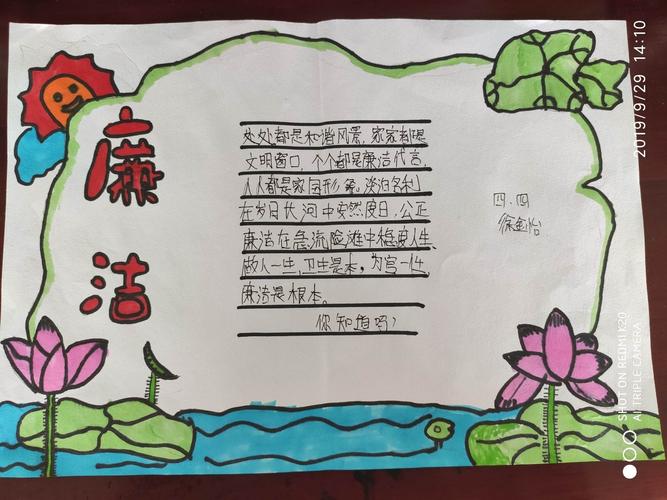 廉
洁
处处都是和谐风景，家家都是
文明窗口，个个都是廉洁代言，
人人都是家国形象。淡泊名利
在岁月长河中安然度日，公正
廉洁在急流险滩中稳度人生。
做人一生，卫生是本，为官一任，
廉洁是根本。
你知道吗？
四.四
徐金怡
2019/9/29 14:10
SHOT ON REDMI K20
AI TRIPLE CAMERA